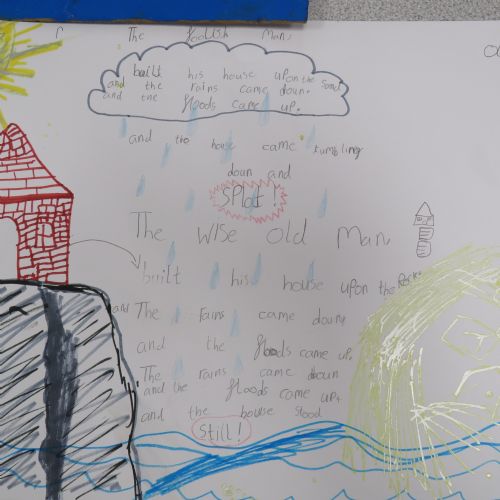 The foolish Man
built his house upon the sand
and the rains came down.
and the floods came up.
and the house came tumbling
down and
SPlat!
The Wise old Man,
built his house upon the Rock
and The rains came down,
and the floods came up,
The rains came down
and the floods came up,
and the house stood
Still!